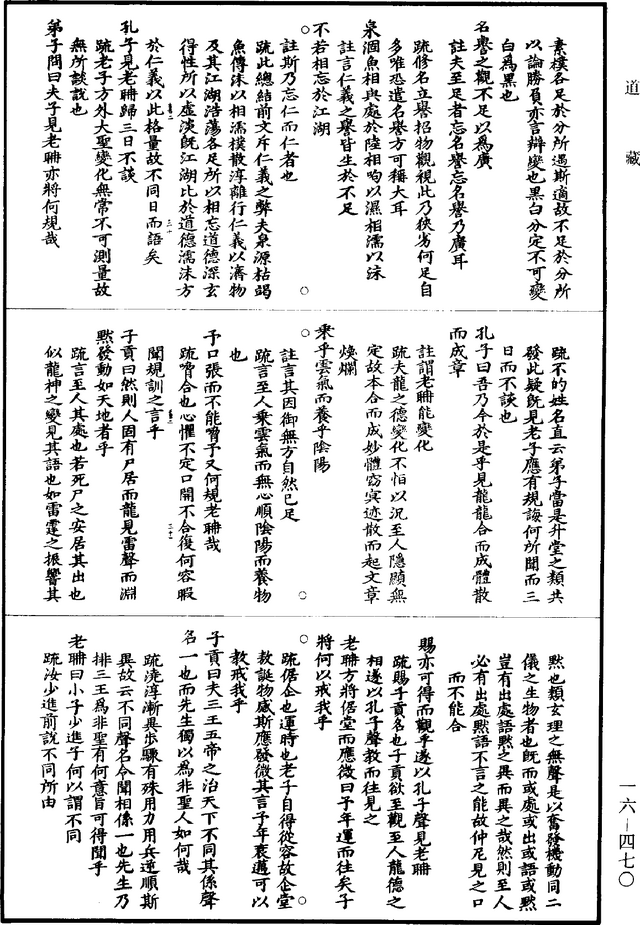 道藏
素樸各足於分所遇斯適故不足於分所
以論勝負亦言辯變也黑白分定不可變
白為黑也
名譽之觀不足以為廣
註夫至足者忘名譽忘名譽乃廣耳
疏修名立譽招物觀視此乃狹劣何足自
多唯忘遺名譽方可稱大耳
泉涸魚相與處於陸相呴以濕相濡以沫
註言仁義之譽皆生於不足
不若相忘於江湖
註斯乃忘仁而仁者也
疏此總結前文斥仁義之弊夫泉源枯竭
魚傳沫以相濡樸散淳離行仁義以濟物
及其江湖浩蕩各足所以相忘道德深玄
得性所以虛淡既江湖比於道德濡沫方
於仁義以此格量故不同日而語矣
孔子見老聃歸三日不談
疏老子方外大聖變化無常不可測量故
無所談說也
弟子問曰夫子見老聃亦將何規哉
疏不的姓名直云弟子當是升堂之類共
發此疑既見老子應有規誨何所聞而三
日而不談也
孔子曰吾乃今於是乎見龍龍合而成體散
而成章
註謂老聃能變化
疏夫龍之德變化不怕以況至人隱顯無
定故本合而成妙體窈冥迹散而起文章
煥爛
乘乎雲氣而養乎陰陽
註言其因御無方自然已足
疏言至人乘雲氣而無心順陰陽而養物
也
予口張而不能嗋予又何規老聃哉
疏嗋合也心懼不定口開不合復何容暇
聞規訓之言乎
子貢曰然則人固有尸居而龍見雷聲而淵
默發動如天地者乎
疏言至人其處也若死尸之安居其出也
似龍神之變見其語也如雷霆之振響其
默也類玄理之無聲是以奮發機動同二
儀之生物者也既而或處或出或語或默
豈有出處語默之異而異之哉然則至人
必有出處默語不言之能故仲尼見之口
而不能合
賜亦可得而觀乎遂以孔子聲見老聃
疏賜子貢名也子貢欲至觀至人龍德之
相遂以孔子聲教而往見之
老聃方將倨堂而應微曰予年運而往矣子
將何以戒我乎
疏倨企也運時也老子自得從容故企堂
敖誕物感斯應發微其言予年衰邁可以
教戒我乎
子貢曰夫三王五帝之治天下不同其係聲
名一也而先生獨以為非聖人如何哉
疏澆淳漸異步驟有殊用力用兵逆順斯
異故云不同聲名令聞相係一也先生乃
排三王為非聖有何意旨可得聞乎
老聃曰小子少進子何以謂不同
疏汝少進前說不同所由
一六－四七〇